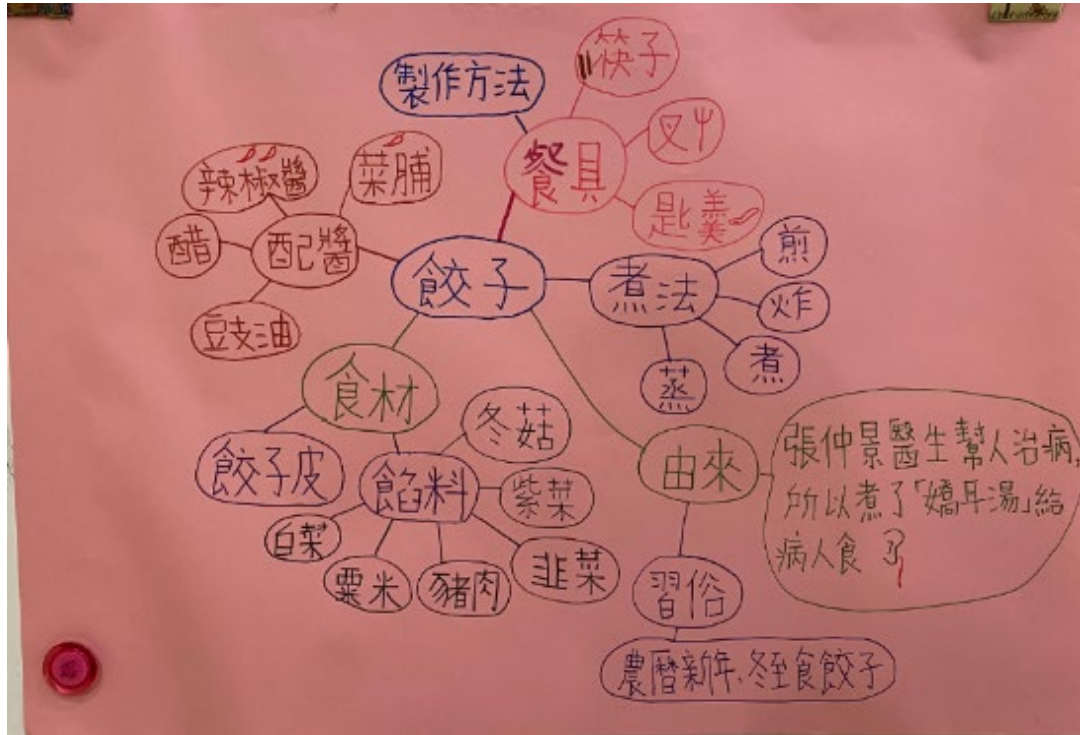 製作方法
筷子
叉
餐具
匙羹
辣椒醬
菜脯
醋
配醬
豉油
餃子
煮法
煎
炸
煮
蒸
食材
餃子皮
餡料
冬菇
紫菜
韭菜
豬肉
粟米
白菜
由來
張仲景醫生幫人治病,
所以煮了「嬌耳湯」給
病人食
習俗
農曆新年、冬至食餃子